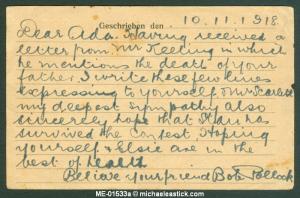 Geschrieben den 10.11.1918.
Dear Ada. Having receives a
letter from Mr Keeling in which
he mentions the death of your
father, I write these few lines
expressing to yourself & Mr
my deepest sympathy also
sincerely hope that Harry has
survived the contest Hoping
yourself & Elsie are in the
best of health
Believe your friend Bob Pollock
ME-01533a © michaeleastick.com